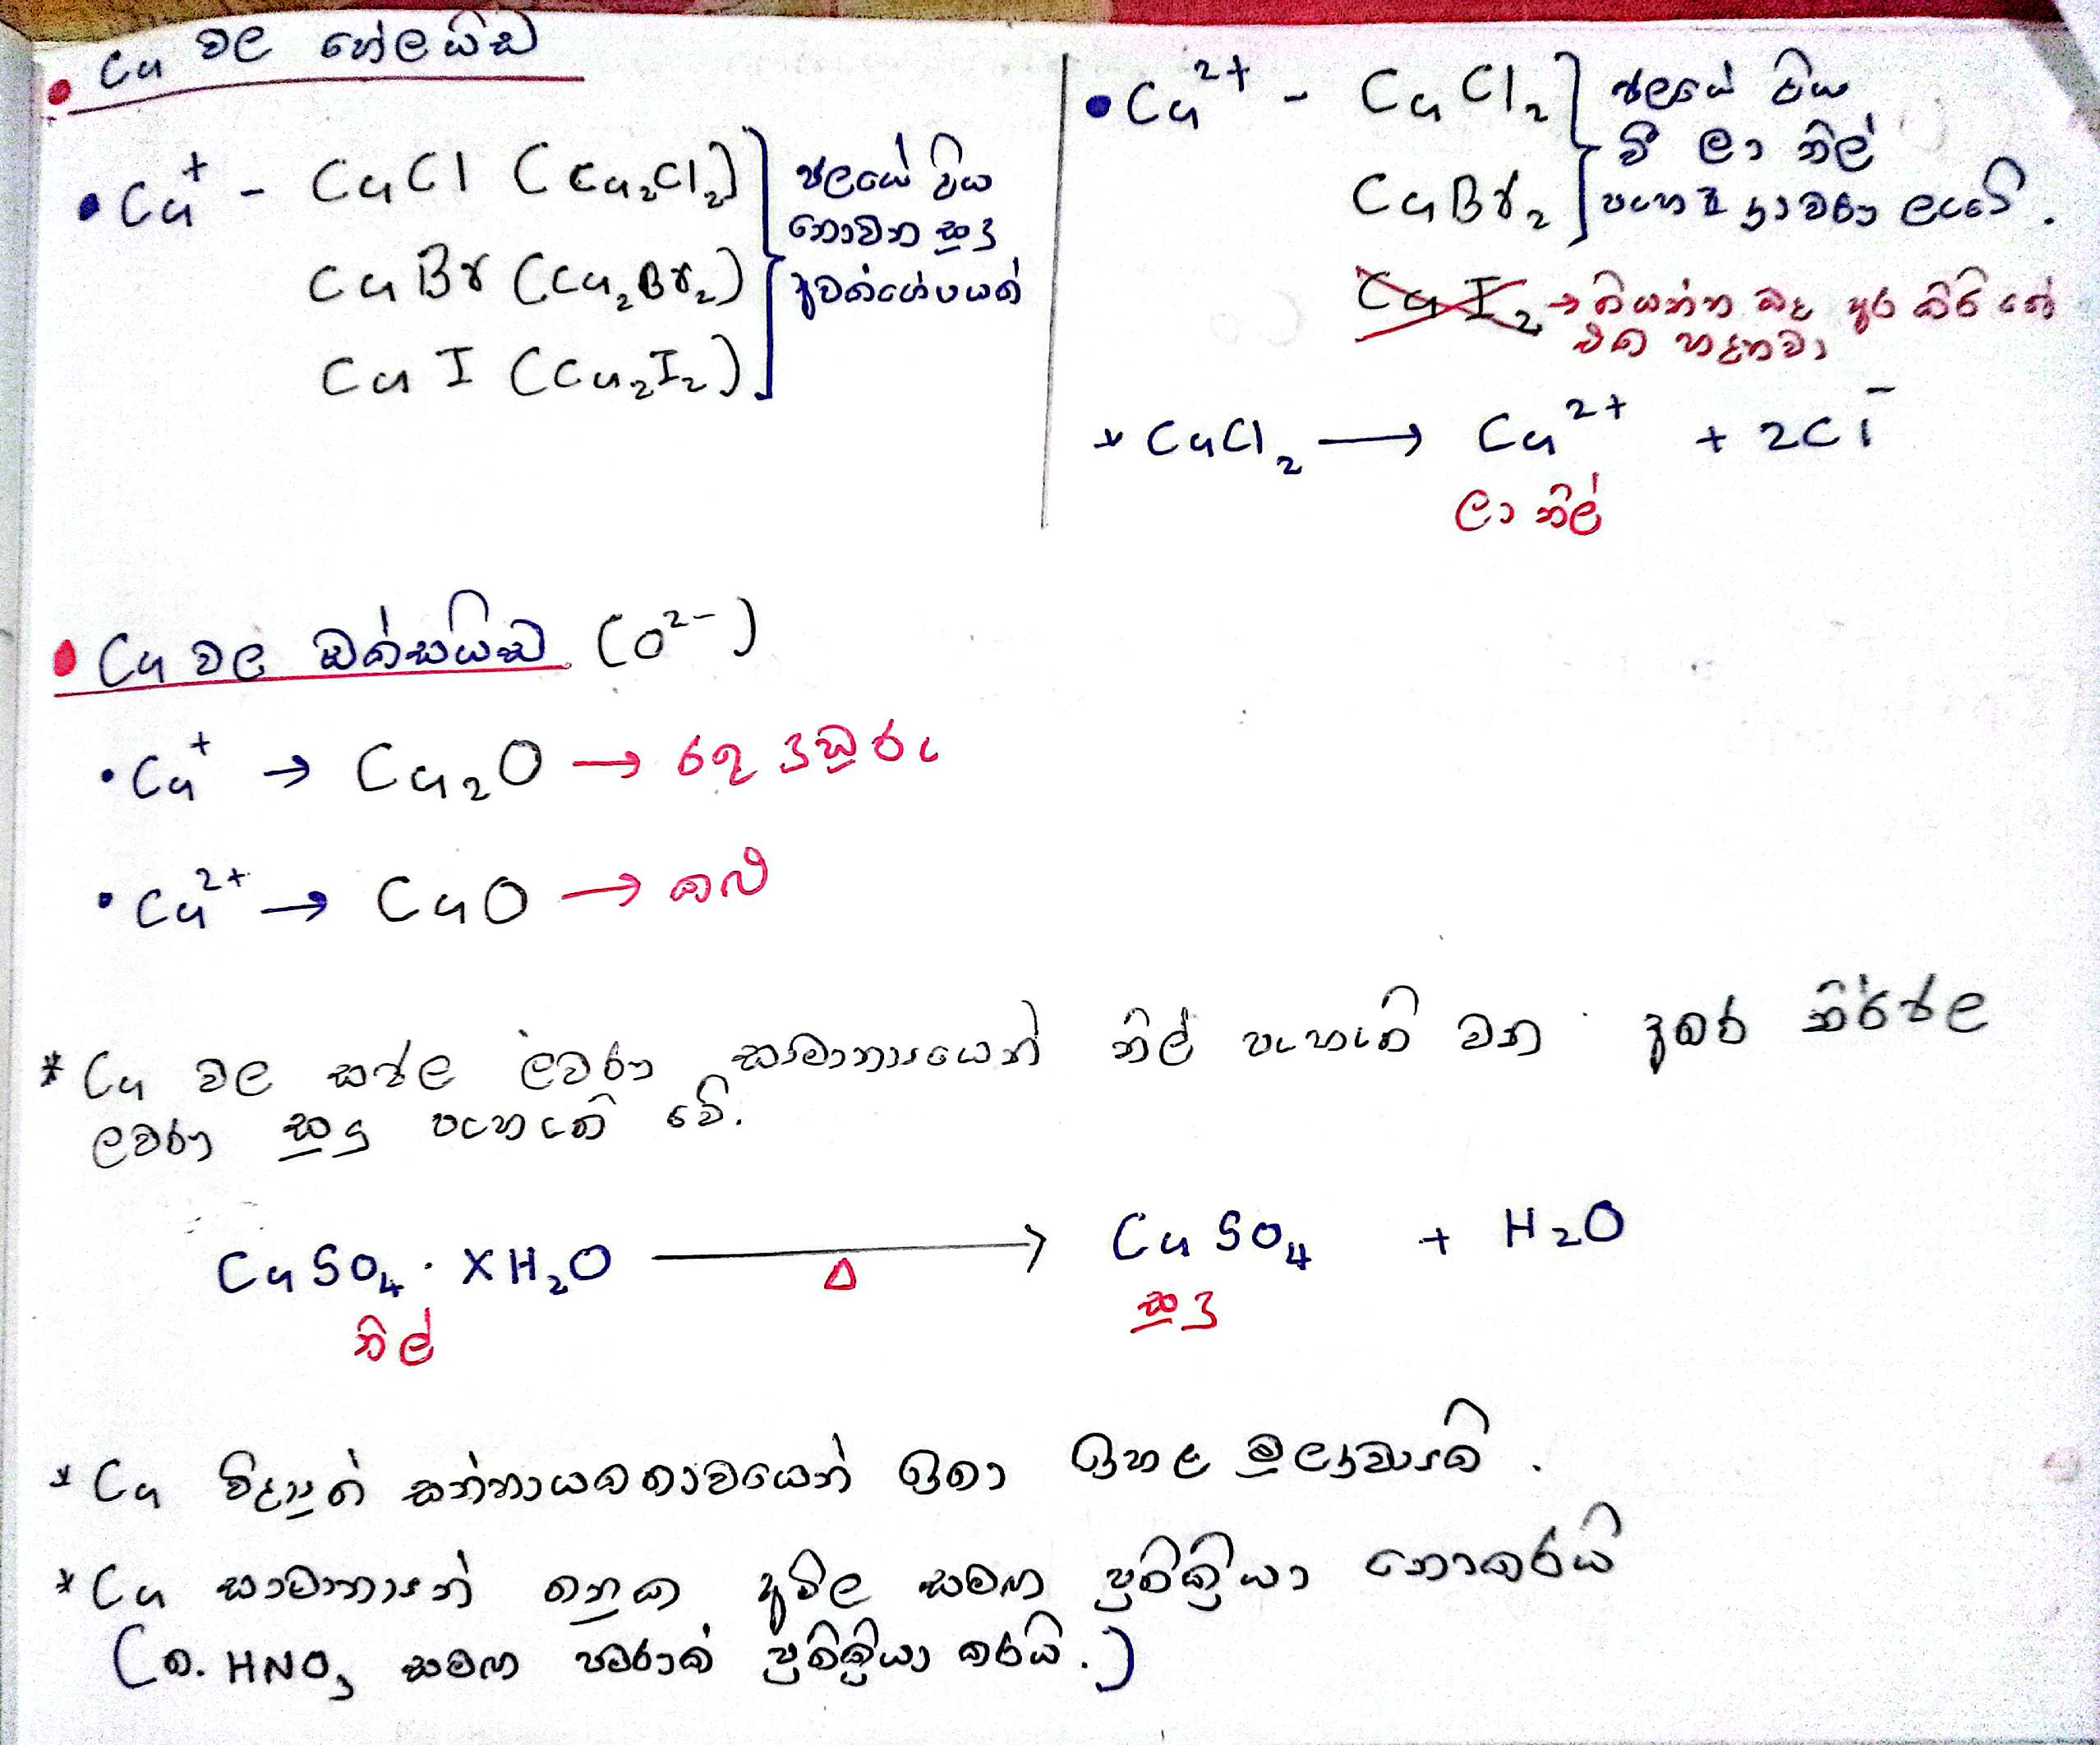 • Cu වල හේලයිඩ
• Cu⁺ - CuCl (Cu₂Cl₂)
CuBr (Cu₂Br₂)
CuI (Cu₂I₂)
ජලයේ දිය
නොවන සුදු
අවක්ශේපයක්
• Cu²⁺ - CuCl₂
CuBr₂
ජලයේ දිය
වී ලා නිල්
පැහැ ද්‍රාවණ ලැබේ.
CuI₂ → තියන්න බෑ
එක හදනවා
* CuCl₂ → Cu²⁺ + 2Cl⁻
ලා නිල්
• Cu වල ඔක්සයිඩ (O²⁻)
• Cu⁺ → Cu₂O → රතු දුඹුරු
• Cu²⁺ → CuO → කළු
* Cu වල සජල ලවණ සාමාන්‍යයෙන් නිල් පැහැති වන අතර නිර්ජල
ලවණ සුදු පැහැති වේ.
CuSO₄ · XH₂O →(Δ) CuSO₄ + H₂O
නිල් සුදු
* Cu විද්‍යුත් සන්නායකතාවයෙන් ඉතා ඉහළ මූලද්‍රව්‍යකි.
* Cu සාමාන්‍යයෙන් තනුක අම්ල සමඟ ප්‍රතික්‍රියා නොකරයි
(ත. HNO₃ සමඟ පමණක් ප්‍රතික්‍රියා කරයි.)